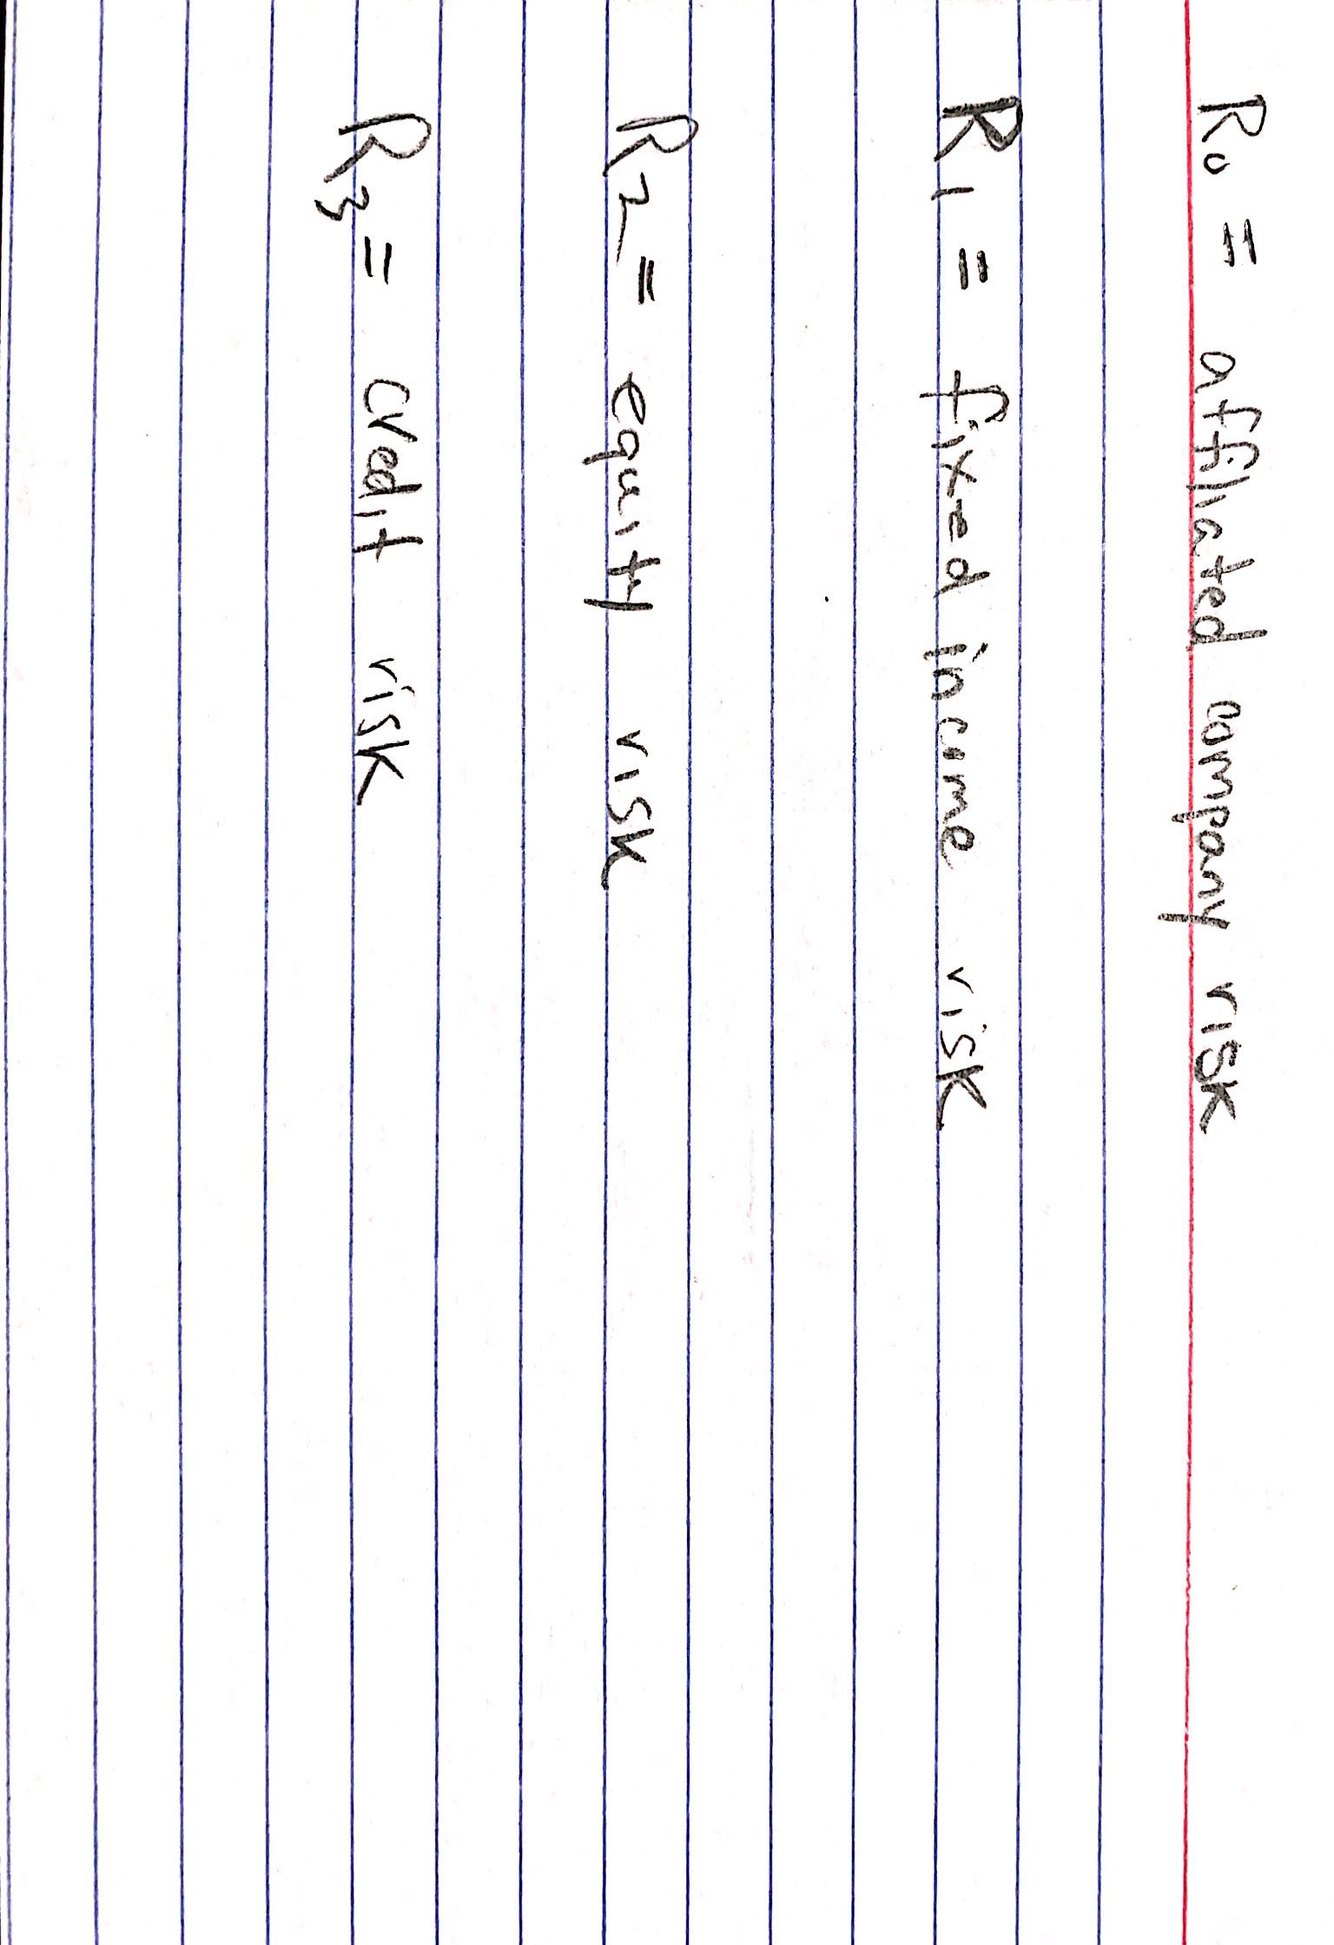 R₀ = affiliated company risk
R₁ = fixed income risk
R₂ = equity risk
R₃ = credit risk